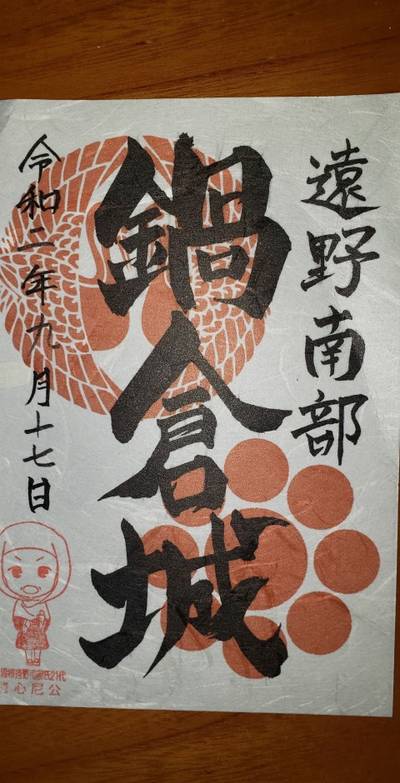 遠野南部
鍋倉城
令和二年九月十七日
心尼公